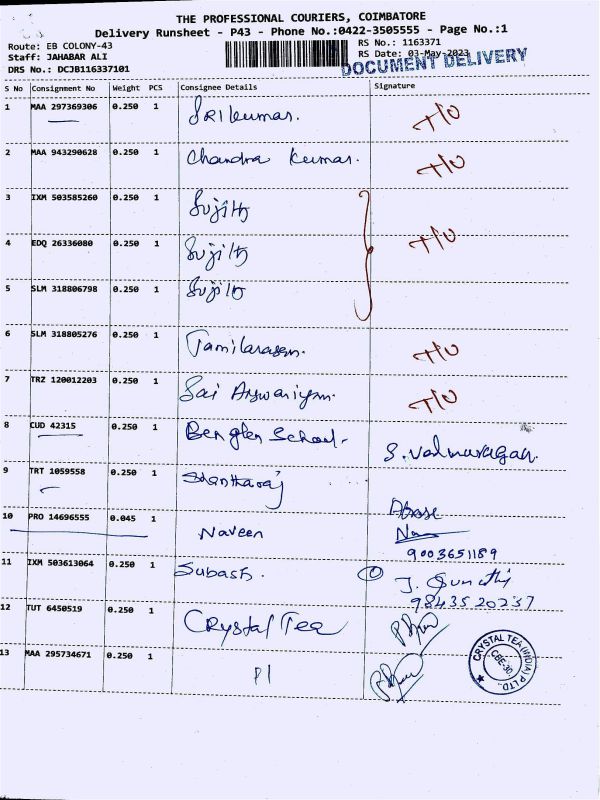 THE PROFESSIONAL COURIERS, COIMBATORE
Delivery Runsheet - P43 - Phone No.:0422-3505555 - Page No.:1
Route: EB COLONY-43 RS No.: 1163371
Staff: JAHABAR ALI RS Date: 03-May-2023
DRS No.: DCJB116337101 DOCUMENT DELIVERY
S No Consignment No Weight PCS Consignee Details Signature
1 MAA 297369306 0.250 1 Srikumar. T/O
2 MAA 943290628 0.250 1 Chandra Kumar. T/O
3 IXM 503585260 0.250 1 Sujith
4 EDQ 26336080 0.250 1 Sujith T/O
5 SLM 318806798 0.250 1 Sujith
6 SLM 318805276 0.250 1 Tamilarasan. T/O
7 TRZ 120012203 0.250 1 Sai T/O
8 CUD 42315 0.250 1 School.
9 TRT 1059558 0.250 1 Shantharaj
10 PRO 14696555 0.045 1 Naveen
9003651189
11 IXM 503613064 0.250 1 Subash.
98435 20237
12 TUT 6450519 0.250 1 Crystal Tea
13 MAA 295734671 0.250 1
CRYSTAL TEA (INDIA) P LTD.
CBE-30.